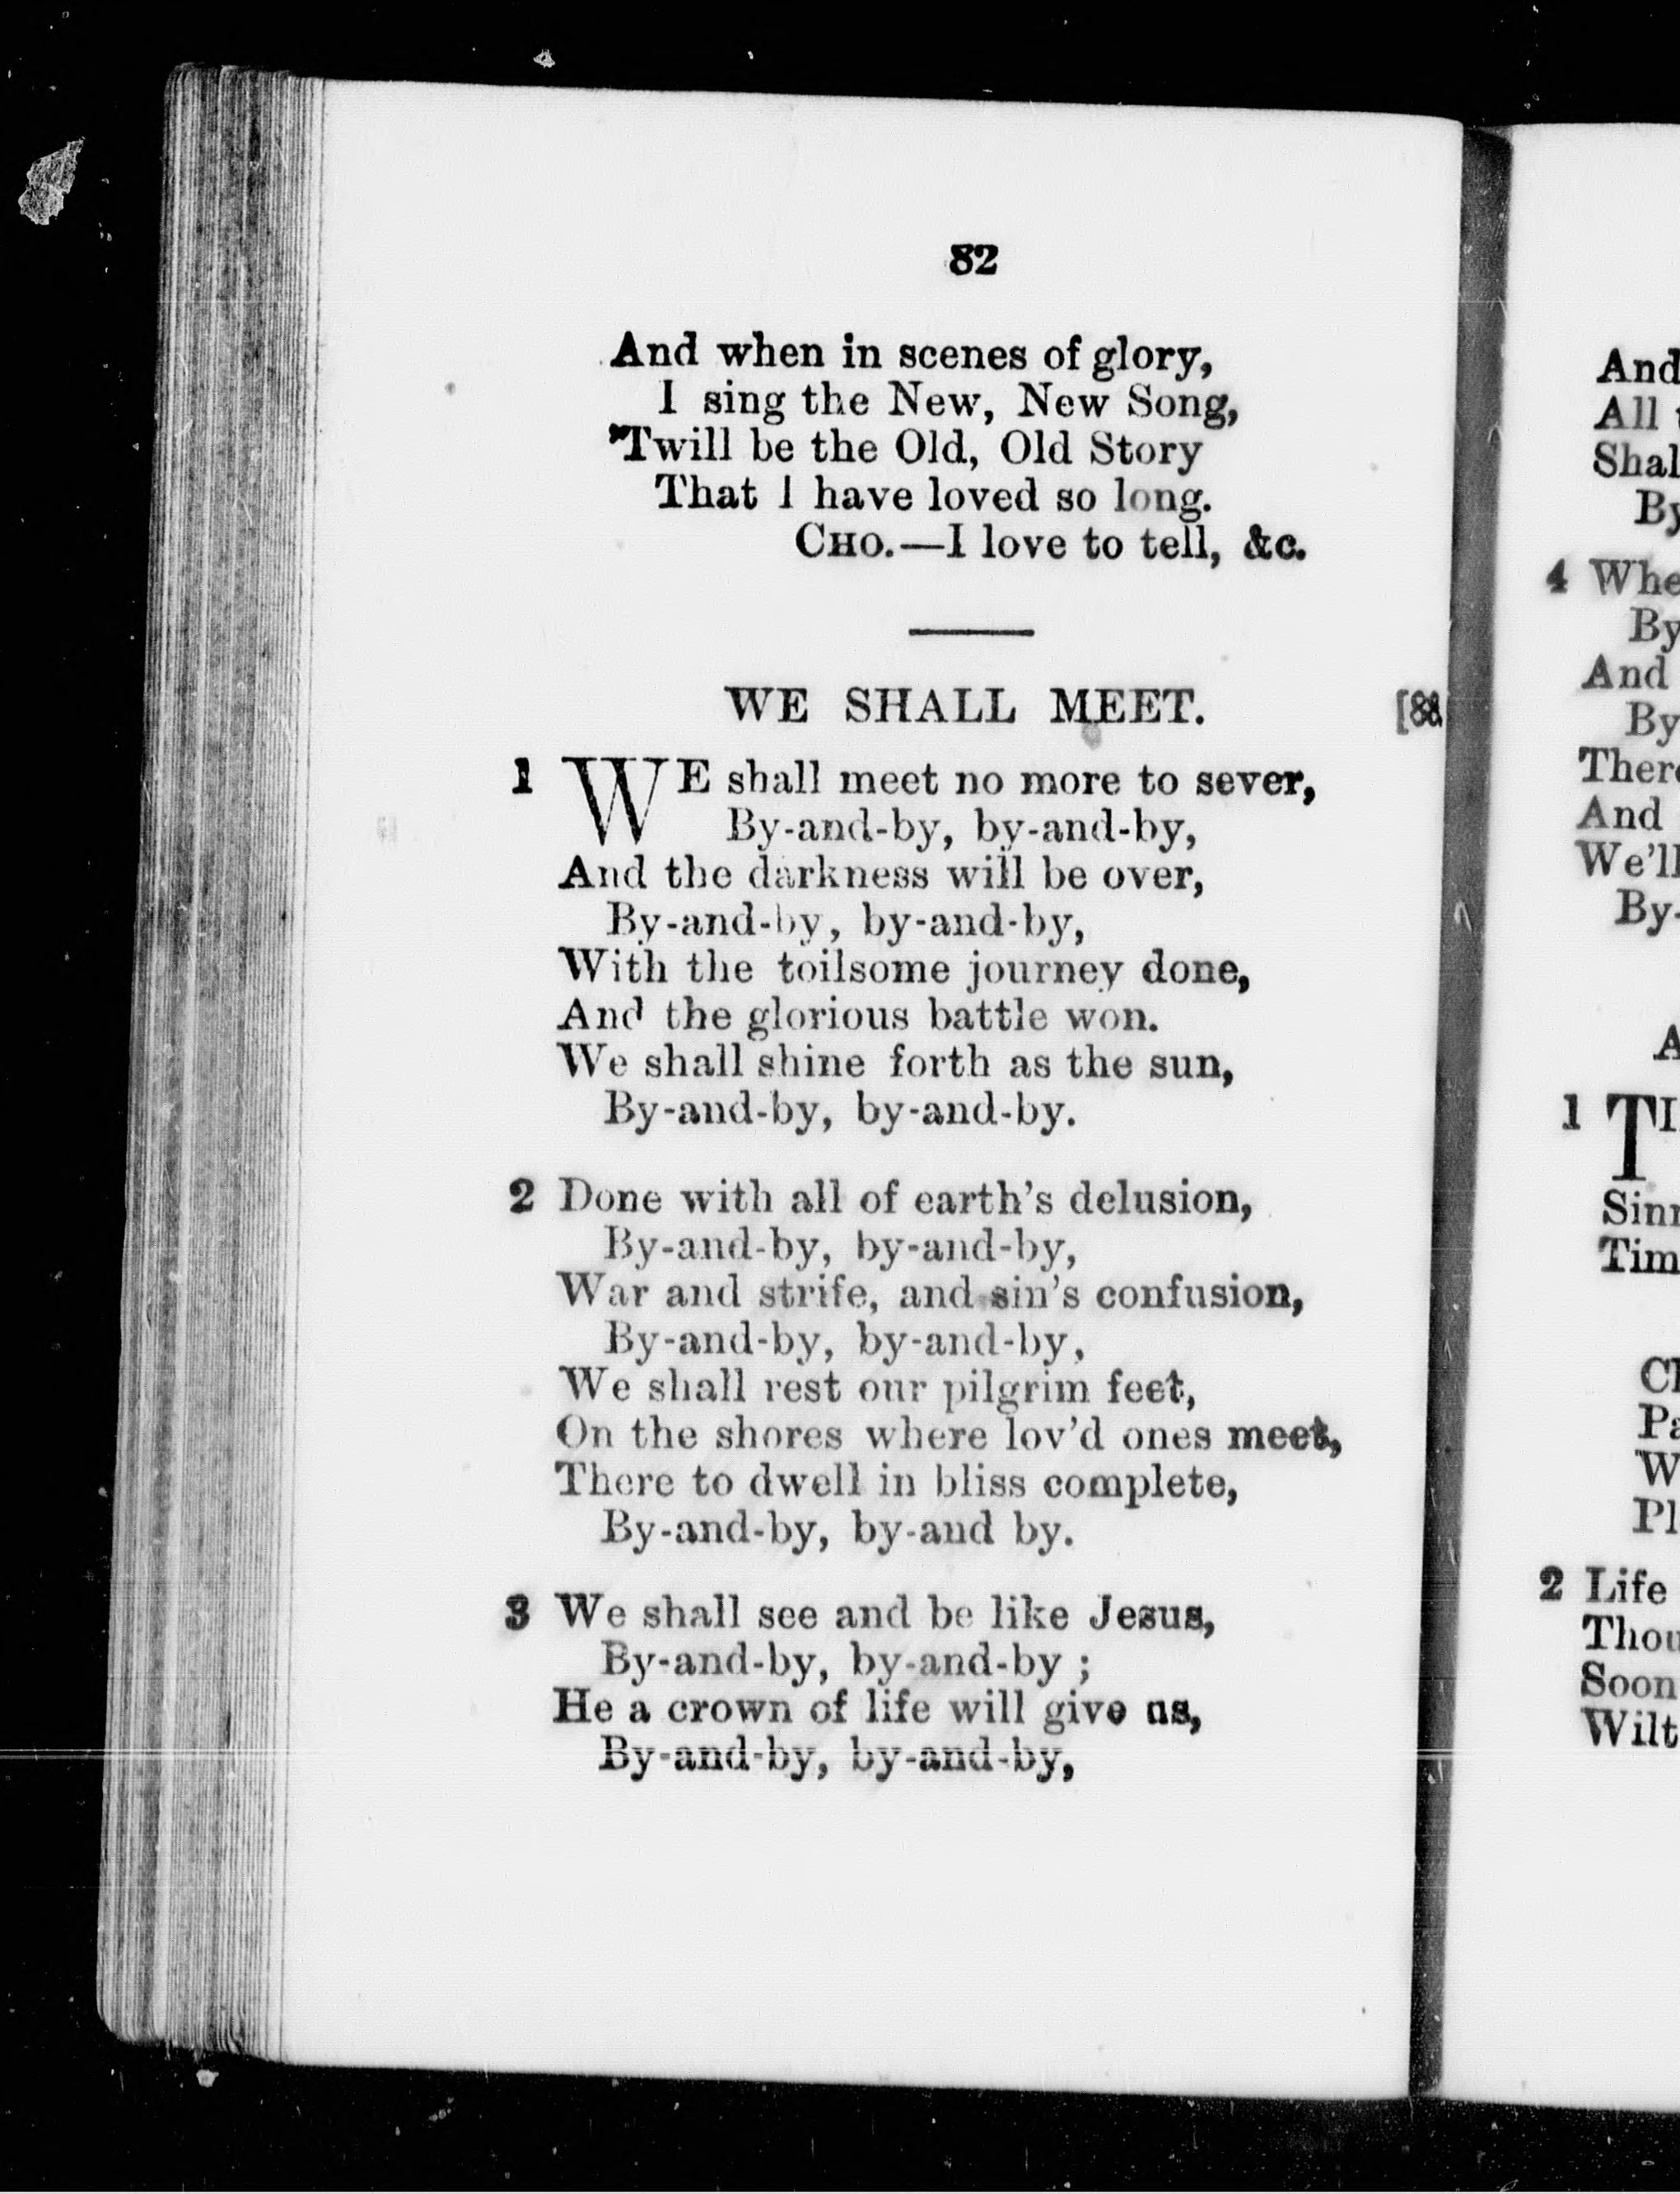 82
And when in scenes of glory,
I sing the New, New Song,
'Twill be the Old, Old Story
That I have loved so long.
CHO.—I love to tell, &c.
WE SHALL MEET.
1 WE shall meet no more to sever,
By-and-by, by-and-by,
And the darkness will be over,
By-and-by, by-and-by,
With the toilsome journey done,
And the glorious battle won.
We shall shine forth as the sun,
By-and-by, by-and-by.
2 Done with all of earth's delusion,
By-and-by, by-and-by,
War and strife, and sin's confusion,
By-and-by, by-and-by,
We shall rest our pilgrim feet,
On the shores where lov'd ones meet,
There to dwell in bliss complete,
By-and-by, by-and by.
3 We shall see and be like Jesus,
By-and-by, by-and-by ;
He a crown of life will give us,
By-and-by, by-and-by,
And
All
4
By
And
By
And
We'll
By-
1
2 Life
Soon